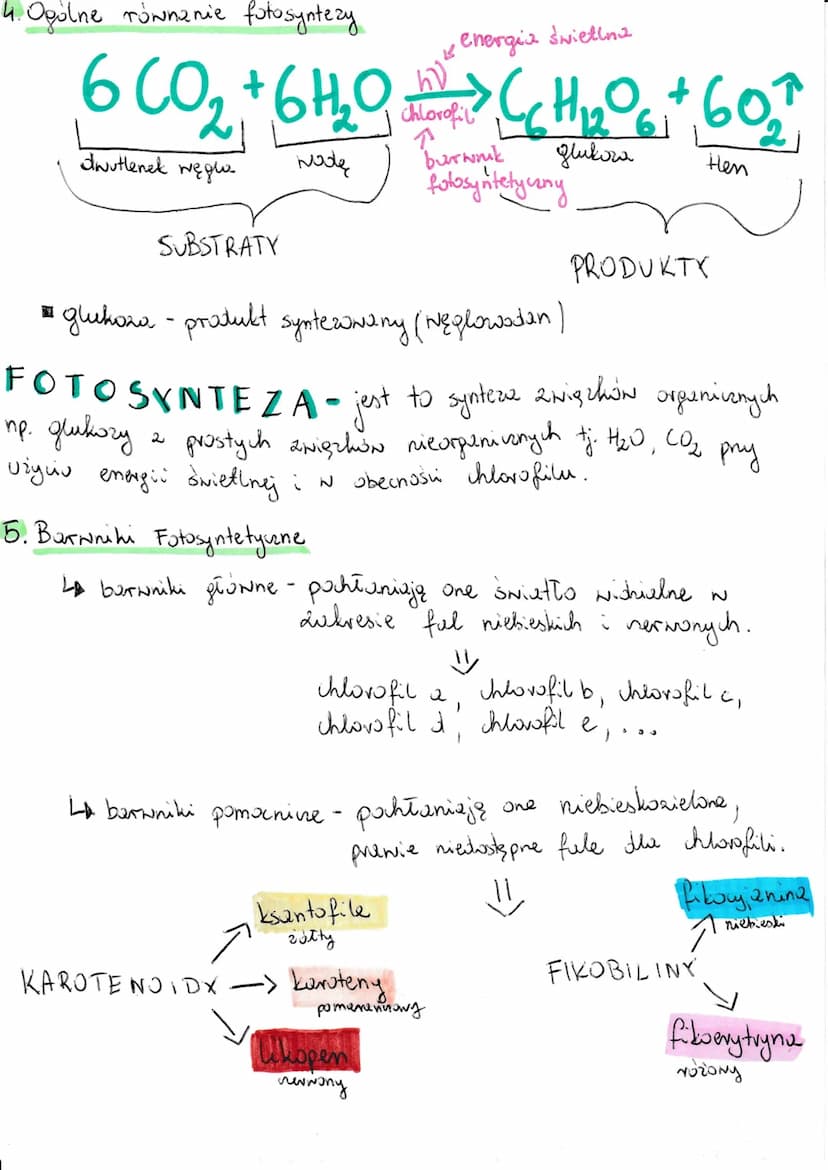 4. Ogólne równanie fotosyntezy
energia świetlna
6CO2 + 6H2O hν → C6H12O6 + 6O2↑
chlorofil
dwutlenek węgla wodę barwnik fotosyntetyczny glukoza tlen
SUBSTRATY
PRODUKTY
glukoza - produkt syntezowany (węglowodan)
FOTOSYNTEZA - jest to synteza związków organicznych
np. glukozy z prostych związków nieorganicznych tj. H2O, CO2 przy
użyciu energii świetlnej i w obecności chlorofilu.
5. Barwniki Fotosyntetyczne
↳ barwniki główne - pochłaniają one światło widzialne w
zakresie fal niebieskich i czerwonych.
⇓
chlorofil a, chlorofil b, chlorofil c,
chlorofil d, chlorofil e, ...
↳ barwniki pomocnicze - pochłaniają one niebieskozielone,
prawie niedostępne fale dla chlorofili.
⇓
ksantofile
żółty
fikocyjanina
niebieski
KAROTENOIDY → karoteny
pomarańczowy
FIKOBILINY
likopen
czerwony
fikoerytryna
różowy